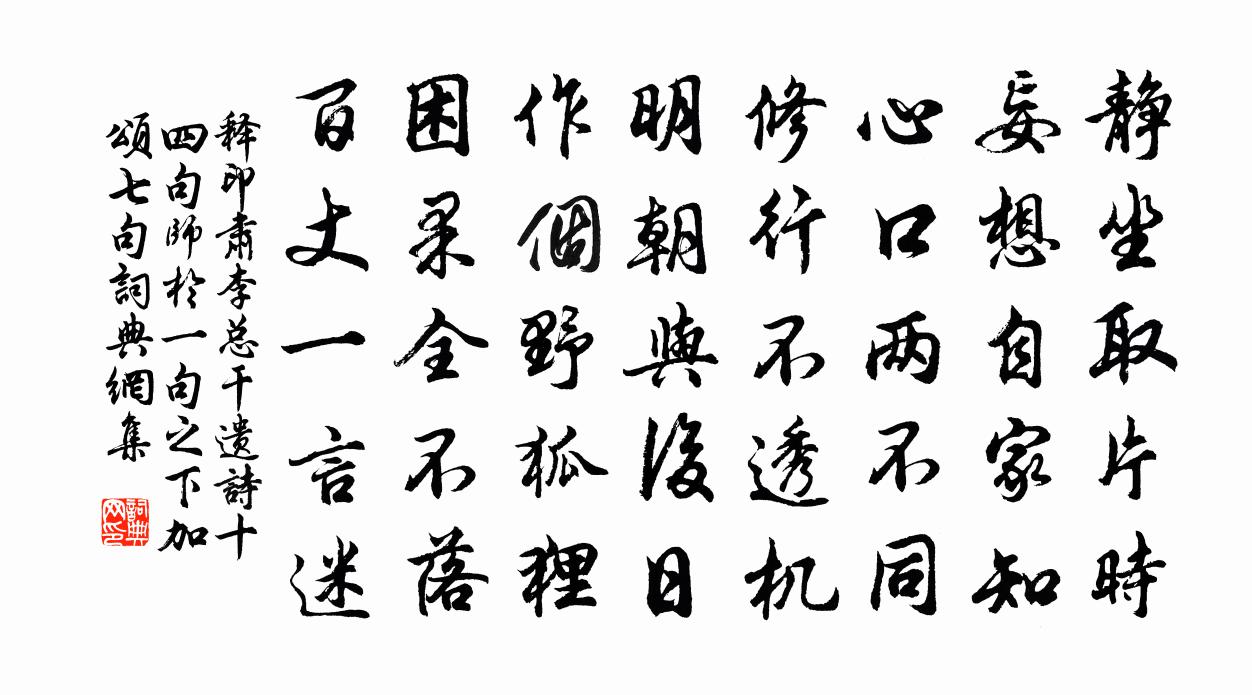 靜坐取片時
妄想自家知
心口两不同
修行不透机
明朝與後日
作個野狐狸
困果全不落
百丈一言迷
释印肃李总干遗詩十
四句師於一句之下加
頌七句詞典網集
詞典网印